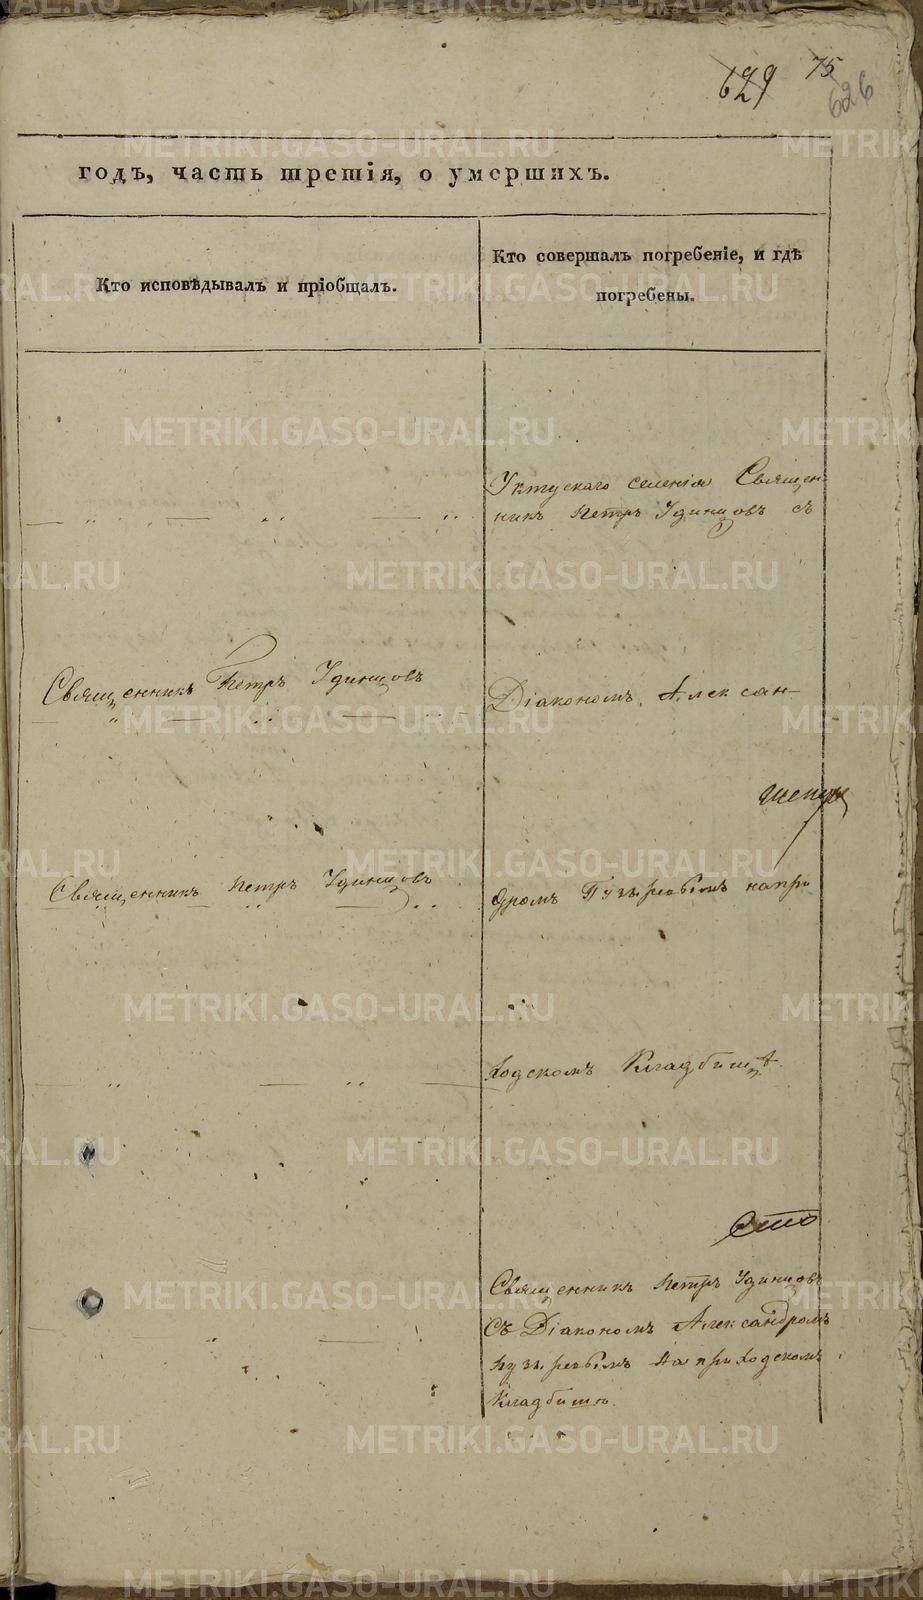 629 75
626
годъ, часть третія, о умершихъ.
Кто исповѣдывалъ и пріобщалъ.
Кто совершалъ погребеніе, и гдѣ
погребены.
Уктускаго селенія Священ-
никъ Петръ Удинцовъ съ
Священникъ Петръ Удинцовъ
Діакономъ Алексан-
Священникъ Петръ Удинцовъ
дромъ Пузыревымъ напри
ходскомъ Кладбищѣ
Священникъ Петръ Удинцовъ
съ Діакономъ Александромъ
Пузыревымъ на приходскомъ
Кладбищѣ
METRIKI.GASO-URAL.RU